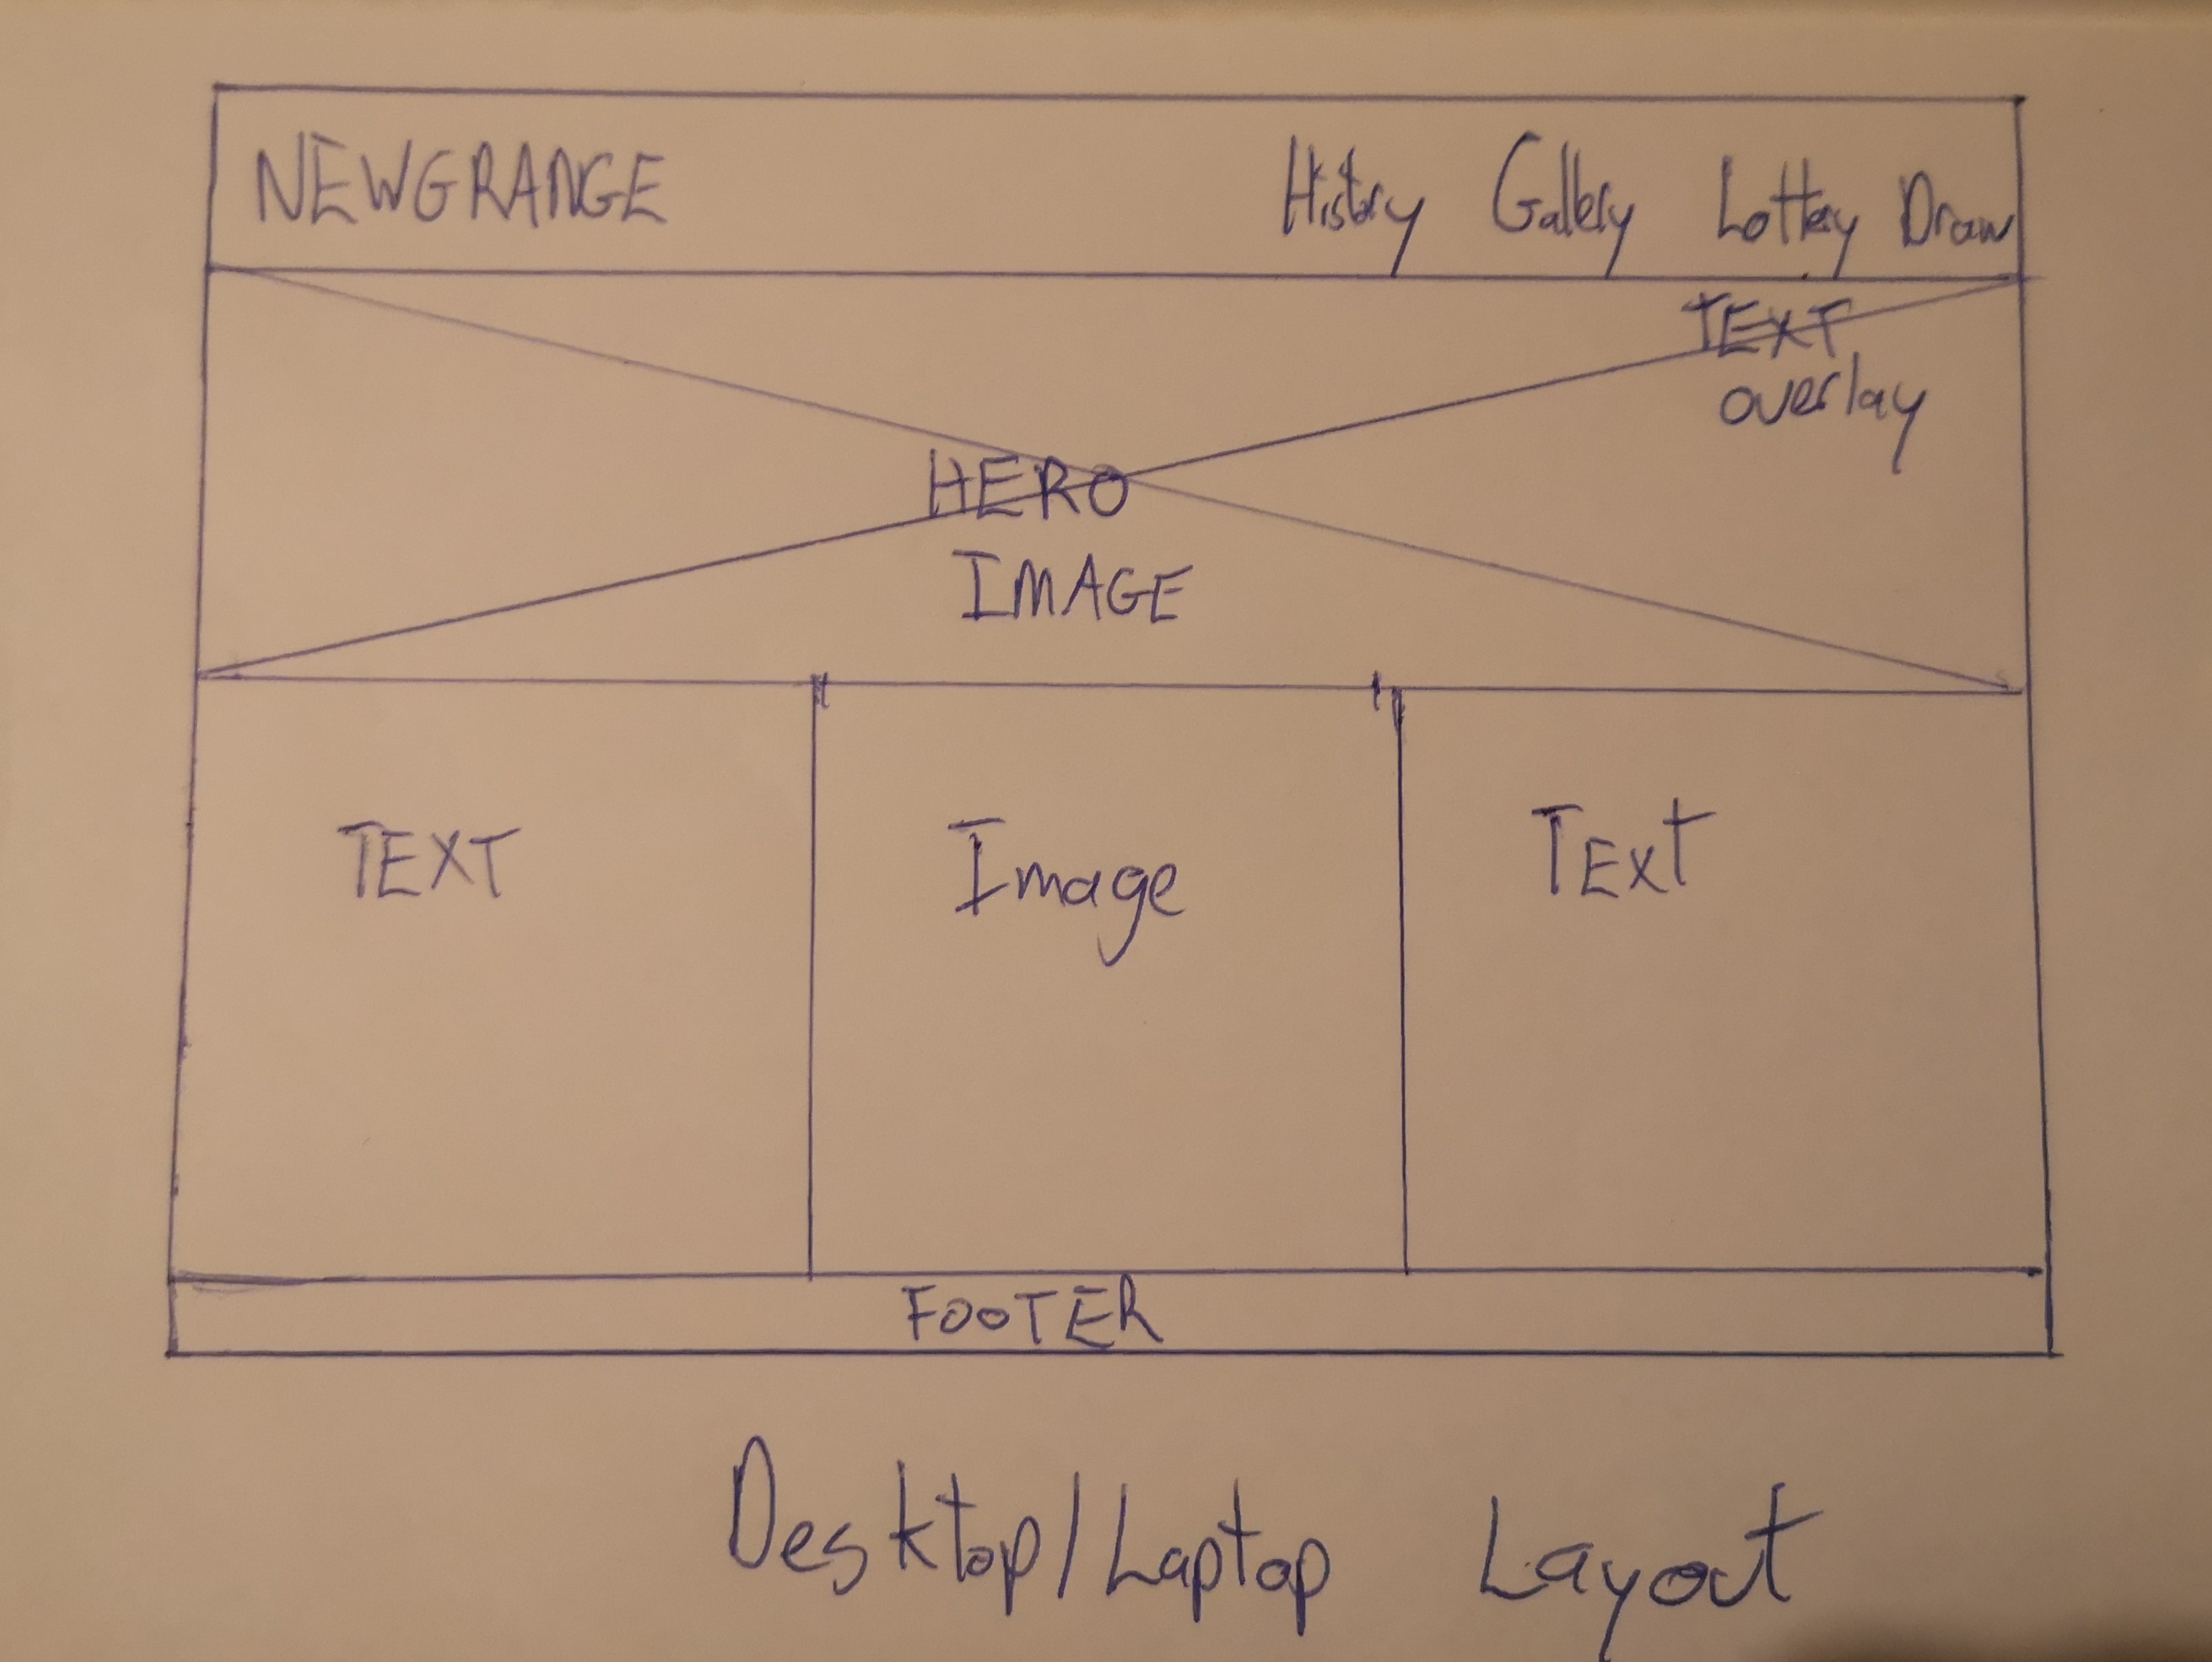 NEWGRANGE History Gallery Lottery Draw
TEXT
overlay
HERO
IMAGE
TEXT Image TExt
FOOTER
Desktop/Laptop Layout